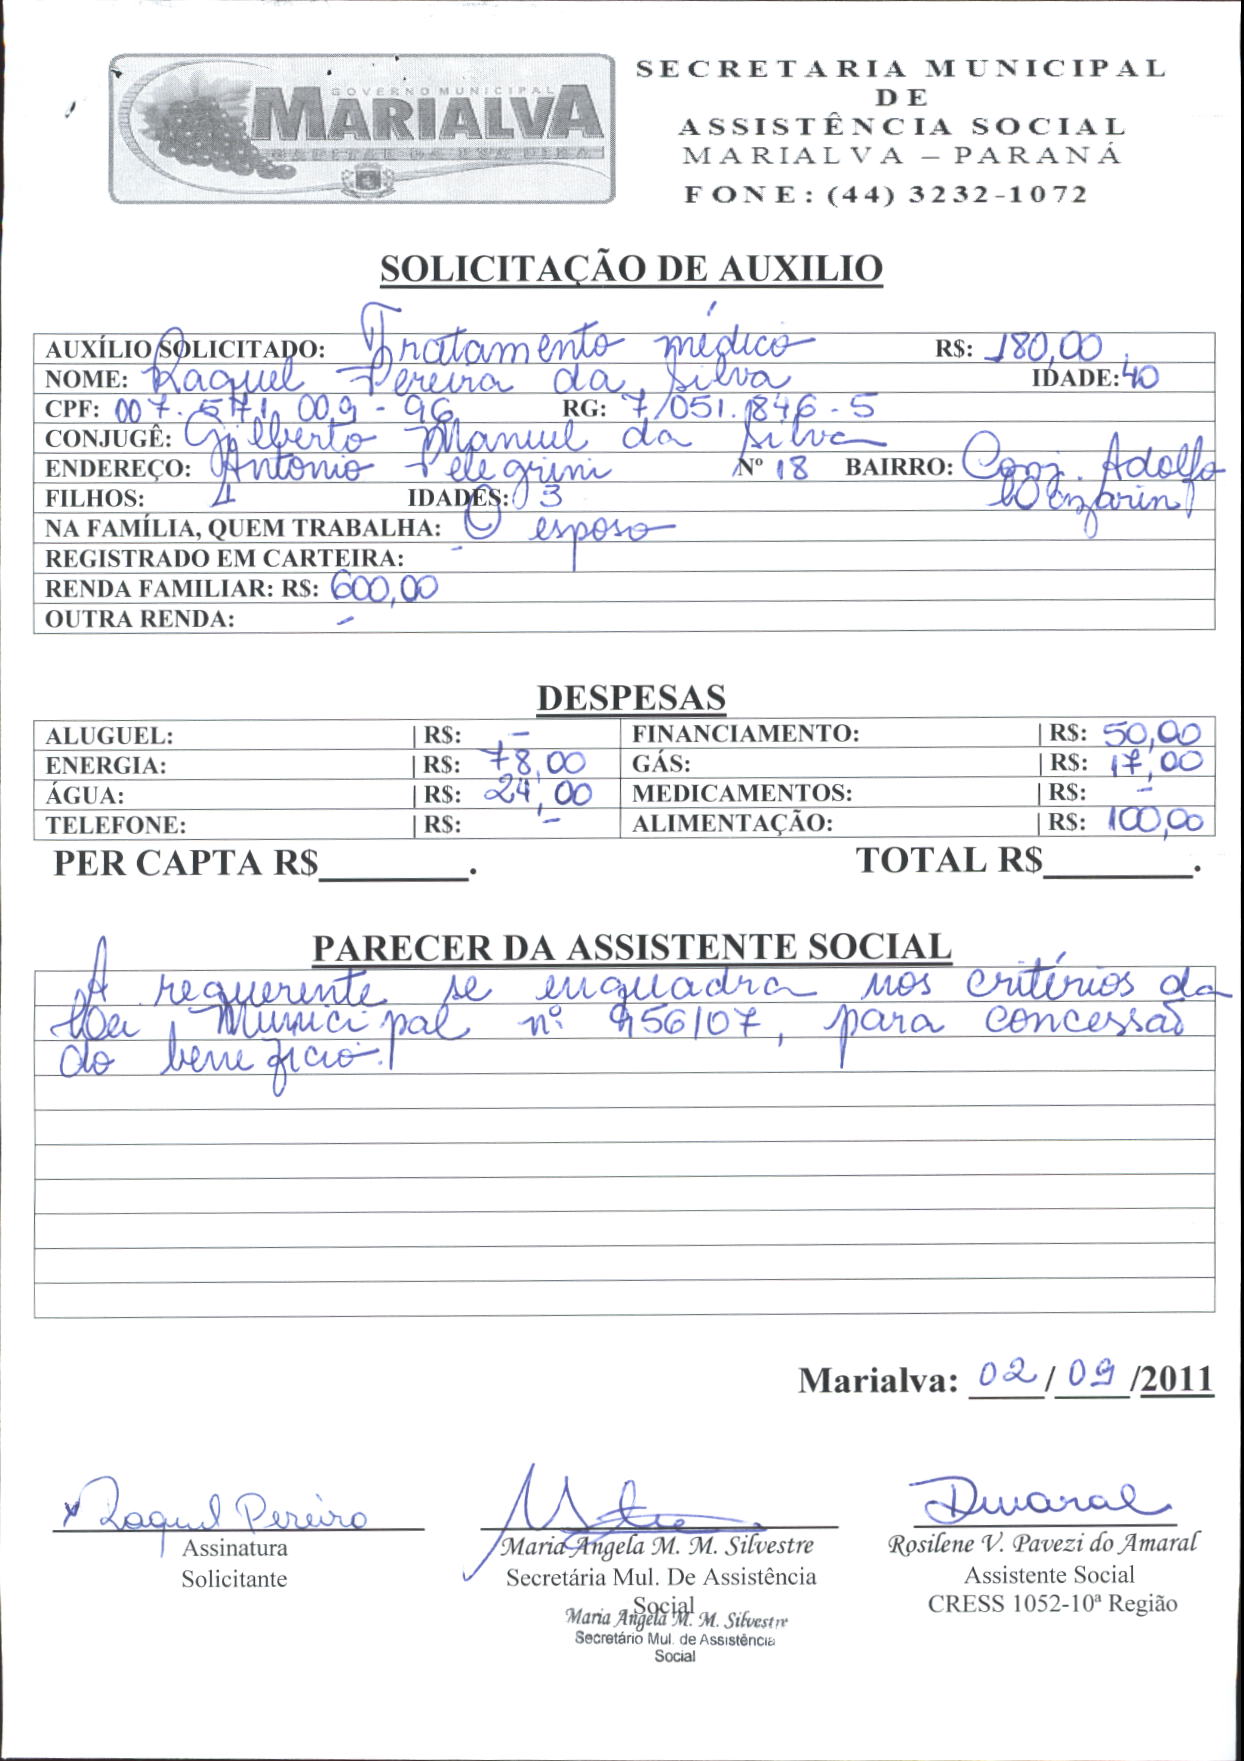 GOVERNO MUNICIPAL
MARIALVA
CAPITAL DA UVA FINA
SECRETARIA MUNICIPAL
DE
ASSISTÊNCIA SOCIAL
MARIALVA – PARANÁ
FONE: (44) 3232-1072
SOLICITAÇÃO DE AUXILIO
AUXÍLIO SOLICITADO: Tratamento médico R$: 180,00
NOME: Raquel Pereira da Silva IDADE: 40
CPF: 007.571.009-96 RG: 7/051.846-5
CONJUGÊ: Gilberto Manuel da Silva
ENDEREÇO: Antonio Pelegrini Nº 18 BAIRRO: Conj. Adolfo
FILHOS: IDADES: 3
NA FAMÍLIA, QUEM TRABALHA: O esposo
REGISTRADO EM CARTEIRA: -
RENDA FAMILIAR: R$: 600,00
OUTRA RENDA: -
DESPESAS
ALUGUEL: | R$: - FINANCIAMENTO: | R$: 50,00
ENERGIA: | R$: 78,00 GÁS: | R$: 17,00
ÁGUA: | R$: 24,00 MEDICAMENTOS: | R$: -
TELEFONE: | R$: - ALIMENTAÇÃO: | R$: 100,00
PER CAPTA R$_______. TOTAL R$_______.
PARECER DA ASSISTENTE SOCIAL
A requerente se enquadra nos critérios da
Lei Municipal nº 956/07, para concessão
do benefício.
Marialva: 02/09/2011
x Raquel Pereira
Amaral
Assinatura
Solicitante
Maria Angela M. M. Silvestre
Secretária Mul. De Assistência
Social
Maria Angela M. M. Silvestre
Secretário Mul. de Assistência
Social
Rosilene V. Pavezi do Amaral
Assistente Social
CRESS 1052-10ª Região